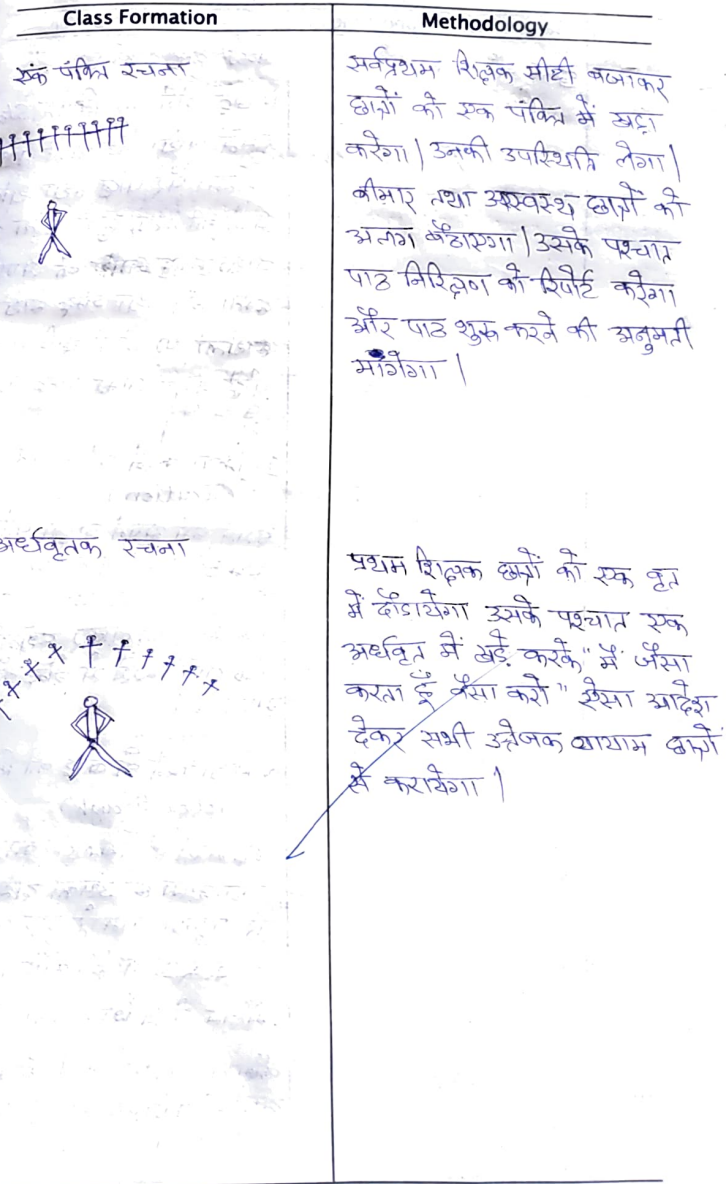 Class Formation
Methodology
एक पंक्ति रचना
सर्वप्रथम शिक्षक सीटी बजाकर
छात्रों को एक पंक्ति में खड़ा
करेगा | उनकी उपस्थिति लेगा |
बीमार तथा अस्वस्थ छात्रों को
अलग बैठाएगा | उसके पश्चात
पाठ निरिक्षण को रिपोर्ट करेगा
और पाठ शुरू करने की अनुमती
मांगेगा |
अर्धवृतक रचना
प्रथम शिक्षक छात्रों को एक वृत
में दौडायेगा उसके पश्चात एक
अर्धवृत में खड़े करके "मैं जैसा
करता हूँ वैसा करो" ऐसा आदेश
देकर सभी उत्तेजक वायाम छात्रों
से करायेगा |